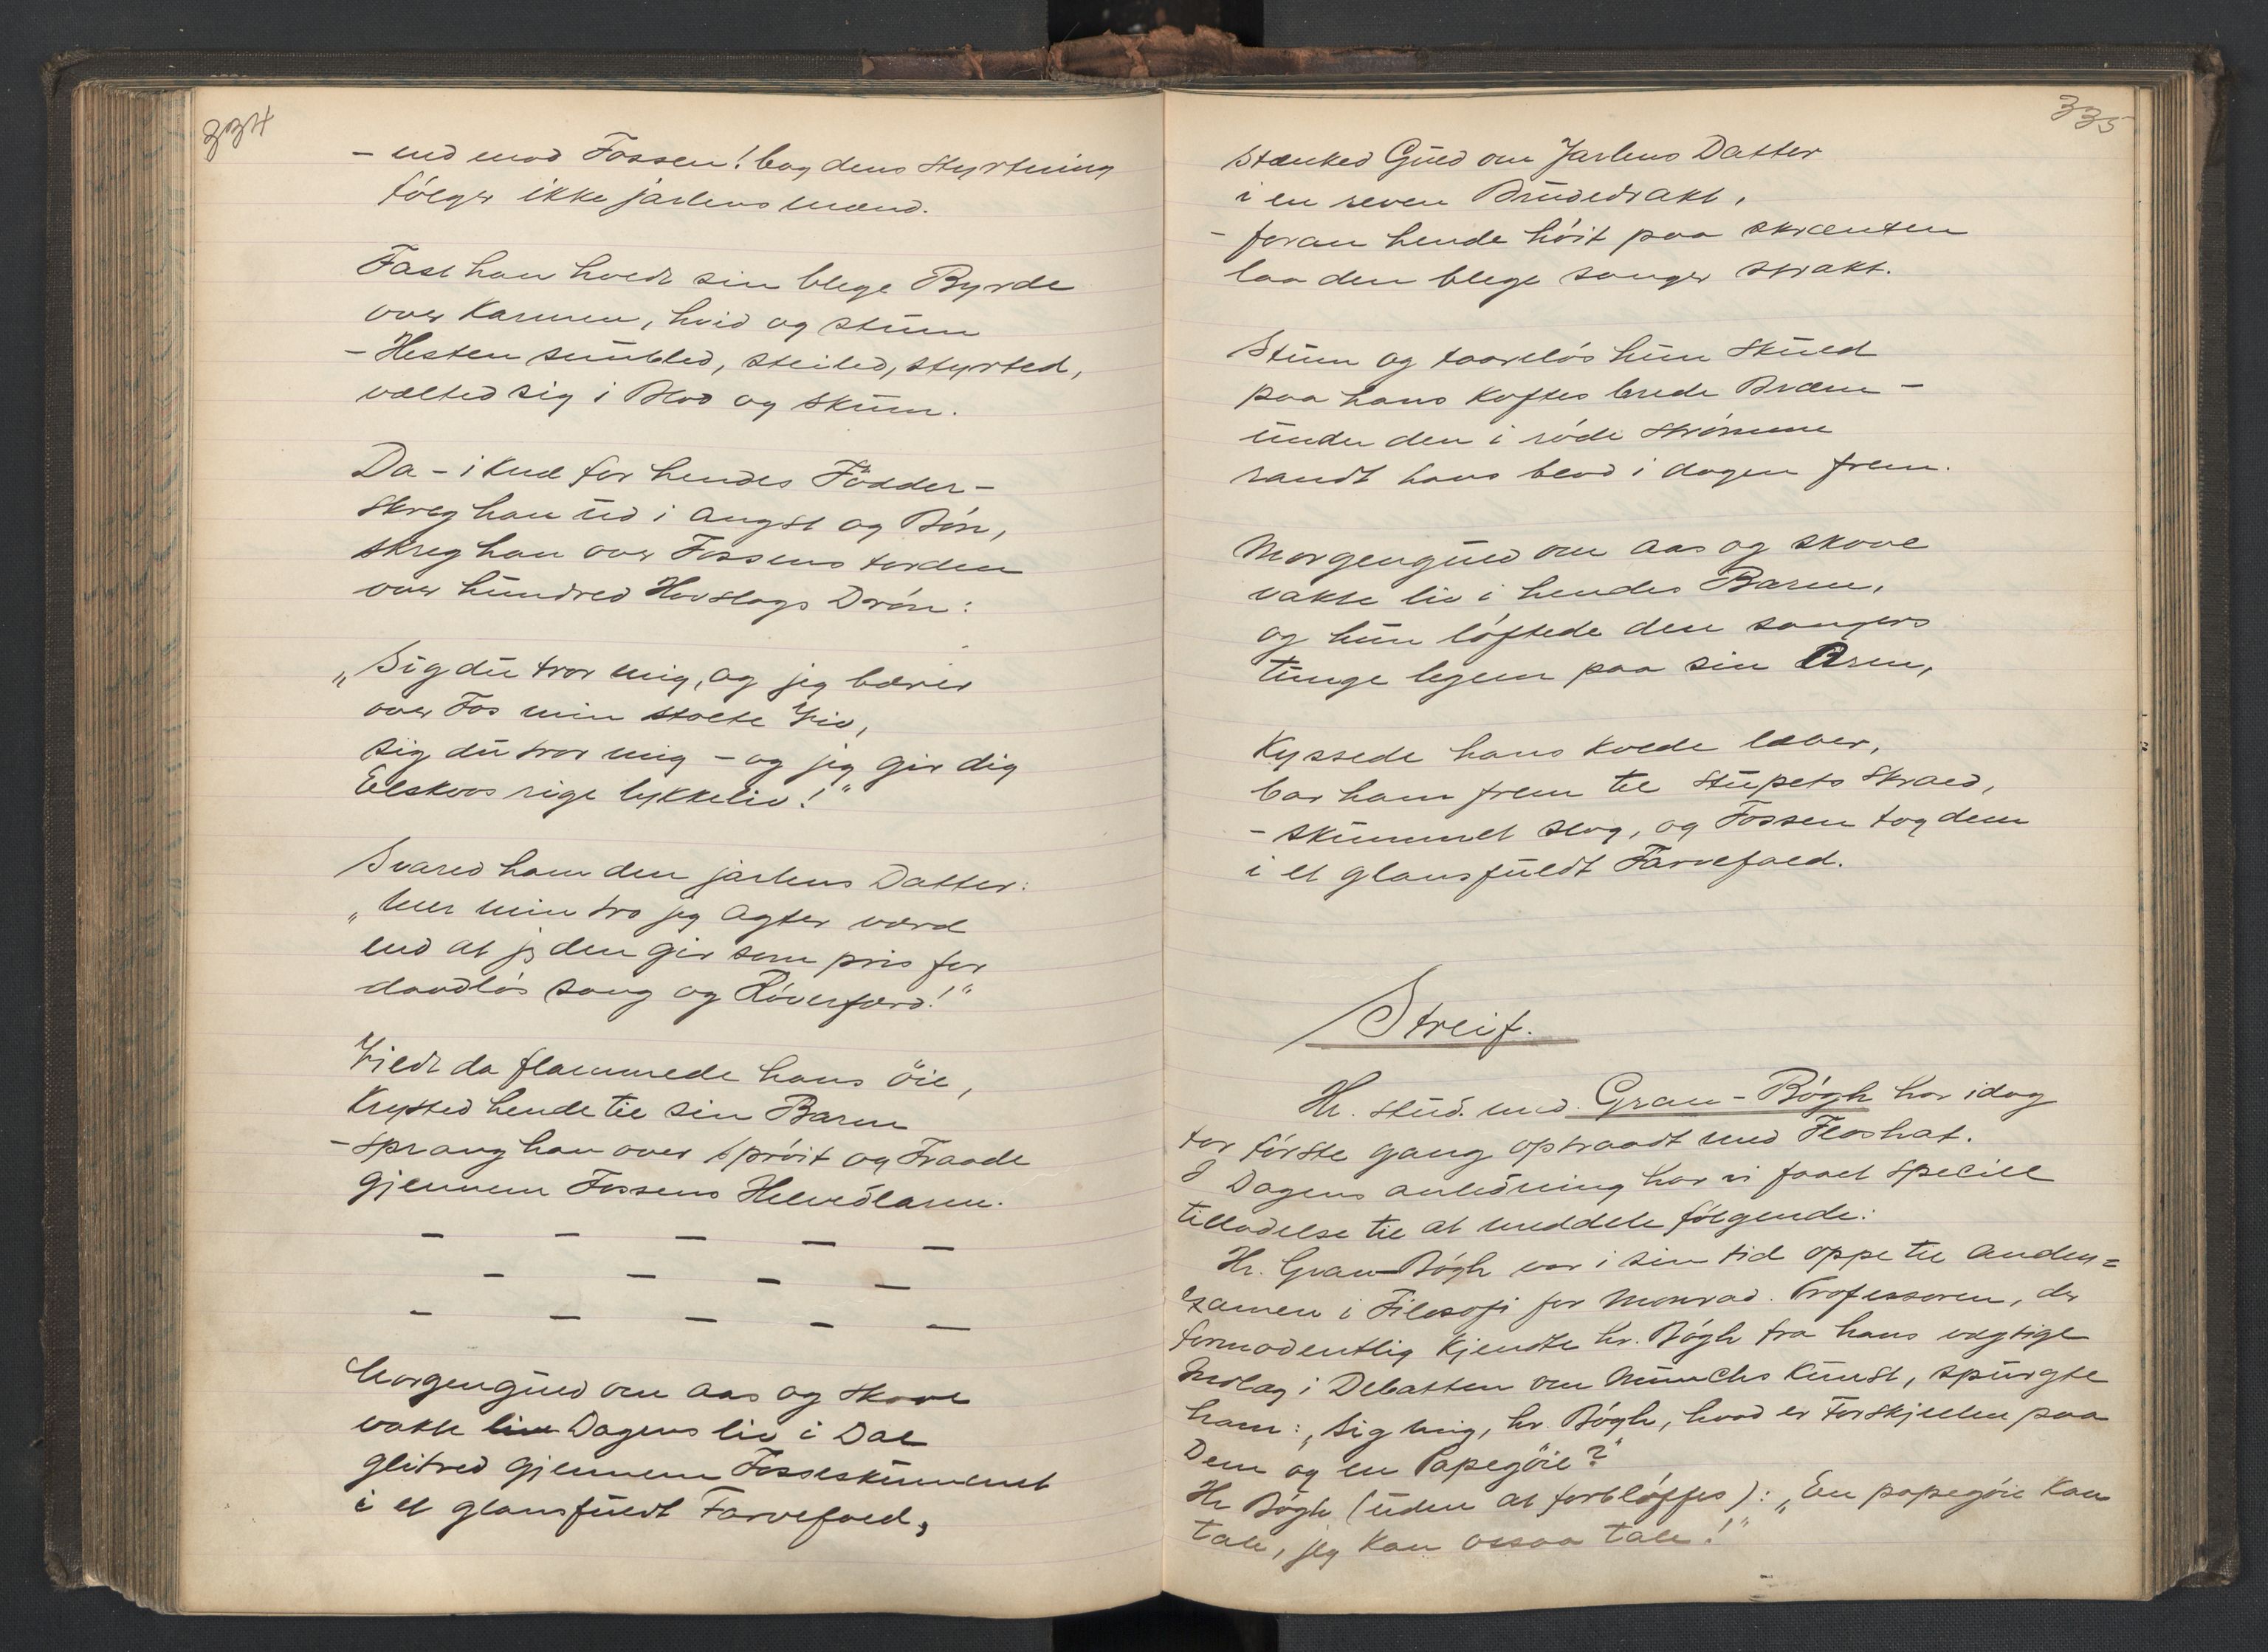 334
– ned mod Fossen! bag dens Styrtning
følger ikke jarlens mænd.
Fast han holdt sin blege Byrde
over Karmen, hvid og stum
– Hesten snubled, steiled, styrted,
vælted sig i Blod og Skum.
Da – i Knæ for hendes Fødder –
skreg han ud i angst og Bøn,
skreg han over Fossens torden
over hundred Hovslags Drøn:
„Sig du tror mig, og jeg bærer
over Fos min stolte Viv,
sig du tror mig – og jeg gir dig
Elskovs rige lykkeliv!"
Svared ham den jarlens Datter:
„Mer min tro jeg agter værd
end at jeg den gir som pris for
daadløs sang og Røverfærd!"
Vildt da flammede hans øie,
Krysted hende til sin Barm
– sprang han over sprøit og Fraade
gjennem Fossens Helvedlarm.
– – – – –
– – – –
– – – – –
Morgenguld om aas og skove
vakte Dagens liv i Dal
glitred gjennem Fosseskummet
i et glansfuldt Farvefald,
335
stænked Guld om Jarlens Datter
i en reven Brudedrakt,
– foran hende høit paa skrænten
laa den blege sanger strakt.
Stum og taareløs hun skued
paa hans koftes brede Bræm –
under den i røde strømme
randt hans blod i dagen frem.
Morgenguld om aas og skove
vakte liv i hendes Barm,
og hun løftede den sangers
tunge legem paa sin Arm,
Kyssede hans kolde læber,
bar ham frem til stupets Skraa,
– skummet slog, og Fossen tog dem
i et glansfuldt Farvefald.
Streif.
Hr. stud. med. Gran-Bøgh har idag
for første gang optraadt med Floshat.
I Dagens anledning har vi faaet speciel
tilladelse til at meddele følgende:
Hr. Gran-Bøgh var i sin tid oppe til anden=
examen i Filosofi for Monrad. Professoren, der
formodentlig kjendte hr. Bøgh fra hans vægtige
Indlæg i Debatten om Munchs Kunst, spurgte
ham: „Sig mig, hr. Bøgh, hvad er Forskjellen paa
Dem og en Papegøie?"
Hr Bøgh (uden at forbløffes): „En papegøie kan
tale, jeg kan ossaa tale!"